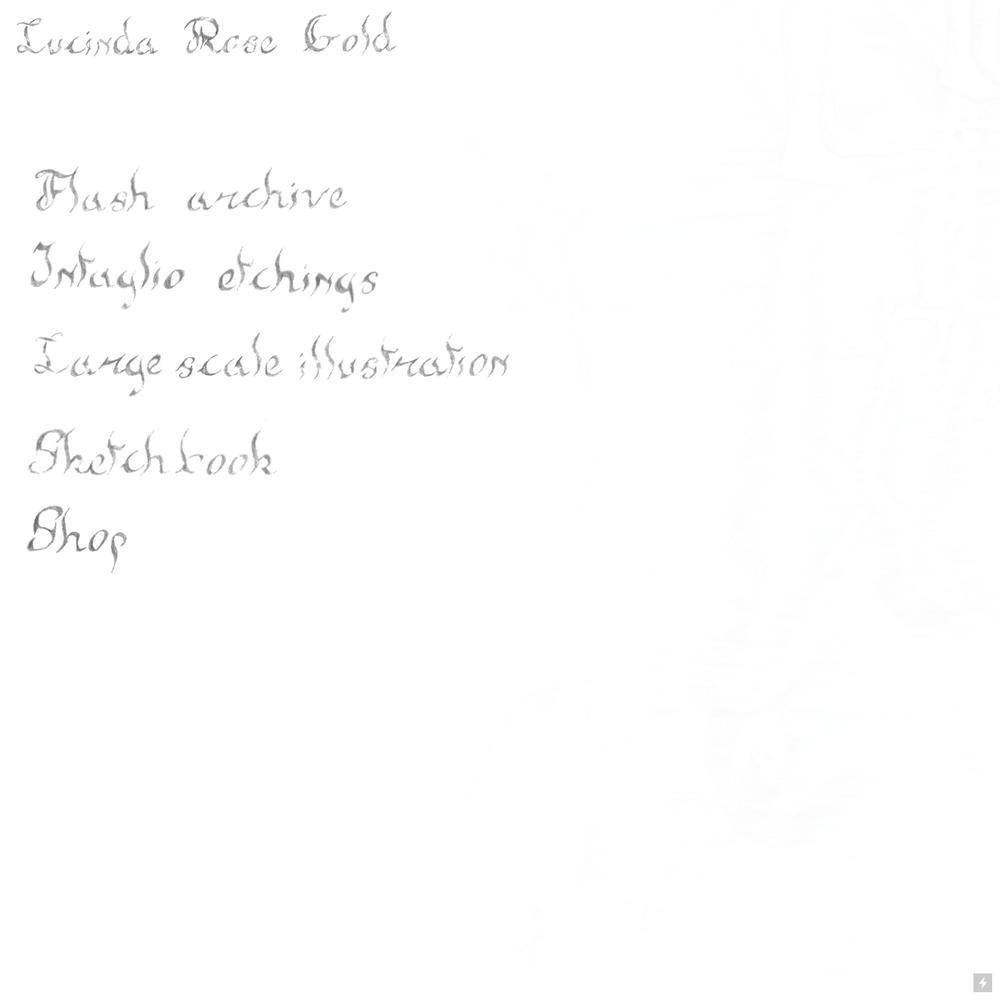 Lucinda Rose Gold
Flash archive
Intaglio etchings
Large scale illustration
Sketchbook
Shop